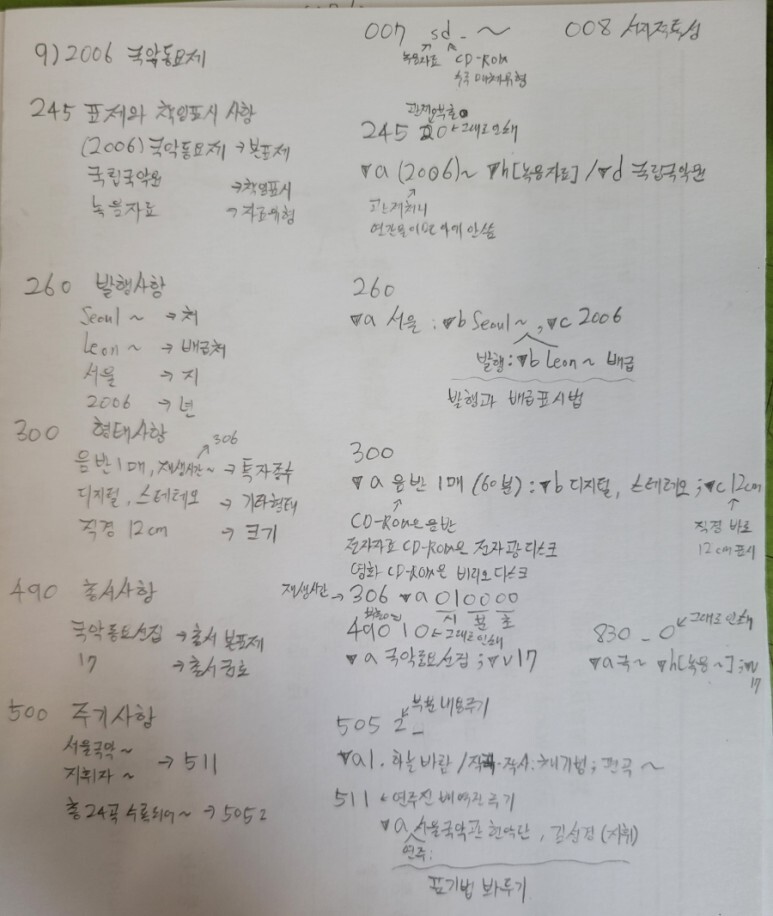 9) 2006 국악동요제
245 표제와 책임표시 사항
(2006) 국악동요제 → 본표제
국립국악원 → 책임표시
녹음자료 → 자료유형
260 발행사항
Seoul ~ → 처
Leon ~ → 배급처
서울 → 지
2006 → 년
300 형태사항
306
음반 1매, 재생시간 ~ → 특자종수
디지털, 스테레오 → 기타형태
직경 12cm → 크기
490 총서사항
국악동요선집 → 총서 본표제
17 → 총서권호
500 주기사항
서울국악 ~
지휘자 ~ → 511
총 24곡 수록되어 ~ → 505 2
007 sd_ ~
녹음자료 CD-ROM
008 서지적특성
245 20 ← 그대로 인쇄
▼a (2006) ~ ▼h[녹음자료] / ▼d 국립국악원
관제처리
260
▼a 서울 : ▼b Seoul ~ , ▼c 2006
발행 : ▼b Leon ~ 배급
발행과 배급표시법
300
▼a 음반 1매 (60분) : ▼b 디지털, 스테레오 ; ▼c 12cm
CD-ROM은 음반
직경 바로
12cm 표시
전자자료 CD-ROM은 전자광디스크
영화 CD-ROM은 비디오디스크
재생시간 → 306 ▼a 010000
시 분 초
490 10 ← 그대로 인쇄
▼a 국악동요선집 ; ▼v 17
830 _ 0 그대로 인쇄
▼a 국 ~ ▼h[녹음 ~] ; ▼v
17
505 2_ 부분내용주기
▼a 1. 하늘 바람 / 작곡·작사: 채기병 ; 편곡 ~
511 ← 연주진 배역진 주기
▼a 서울국악관현악단, 김성진 (지휘)
연주:
표기법 봐두기